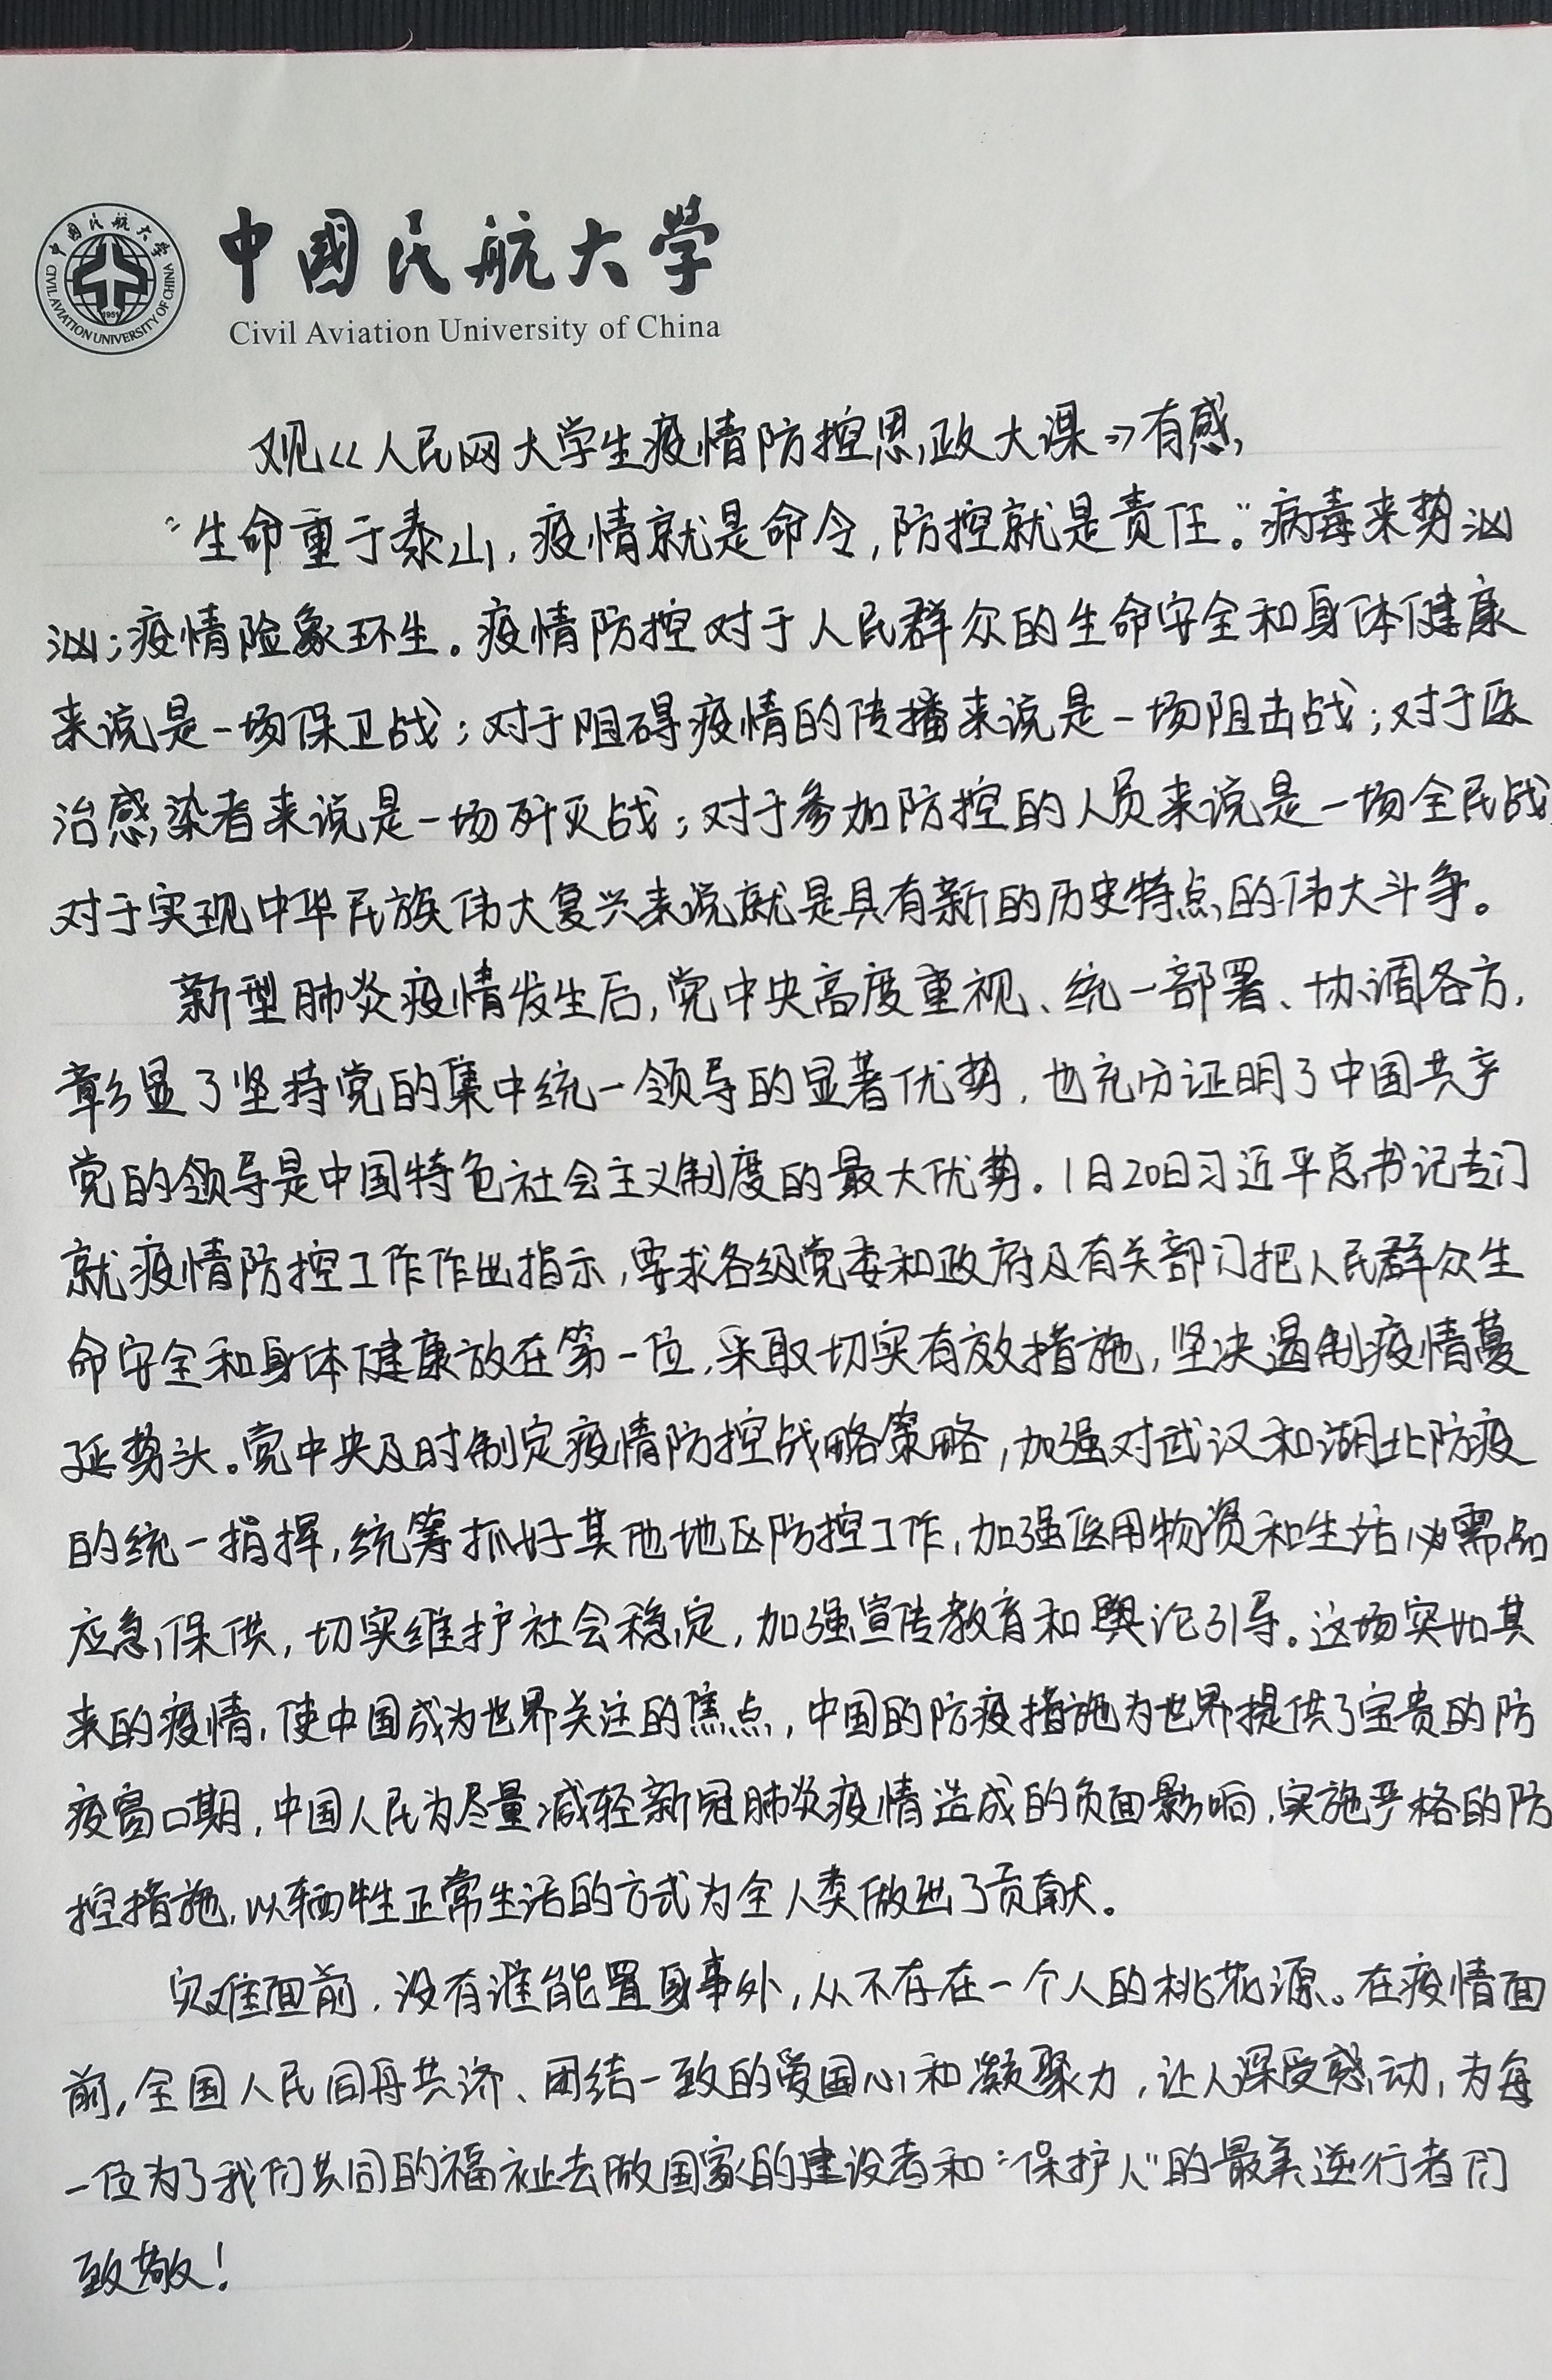 中国民航大学
CIVIL AVIATION UNIVERSITY OF CHINA
1951
中國民航大学
Civil Aviation University of China
观《人民网大学生疫情防控思政大课》有感
“生命重于泰山，疫情就是命令，防控就是责任。”病毒来势汹
汹；疫情险象环生。疫情防控对于人民群众的生命安全和身体健康
来说是一场保卫战；对于阻碍疫情的传播来说是一场阻击战；对于医
治感染者来说是一场歼灭战；对于参加防控的人员来说是一场全民战
对于实现中华民族伟大复兴来说就是具有新的历史特点的伟大斗争。
新型肺炎疫情发生后，党中央高度重视、统一部署、协调各方，
彰显了坚持党的集中统一领导的显著优势，也充分证明了中国共产
党的领导是中国特色社会主义制度的最大优势。1日20日习近平总书记专门
就疫情防控工作作出指示，要求各级党委和政府及有关部门把人民群众生
命安全和身体健康放在第一位，采取切实有效措施，坚决遏制疫情蔓
延势头。党中央及时制定疫情防控战略策略，加强对武汉和湖北防疫
的统一指挥，统筹抓好其他地区防控工作，加强医用物资和生活必需品
应急保供，切实维护社会稳定，加强宣传教育和舆论引导。这场突如其
来的疫情，使中国成为世界关注的焦点，中国的防疫措施为世界提供了宝贵的防
疫窗口期，中国人民为尽量减轻新冠肺炎疫情造成的负面影响，实施严格的防
控措施，以牺牲正常生活的方式为全人类做出了贡献。
灾难面前，没有谁能置身事外，从不存在一个人的桃花源。在疫情面
前，全国人民同舟共济、团结一致的爱国心和凝聚力，让人深受感动，为每
一位为了我们共同的福祉去做国家的建设者和“保护人”的最美逆行者们
致敬！